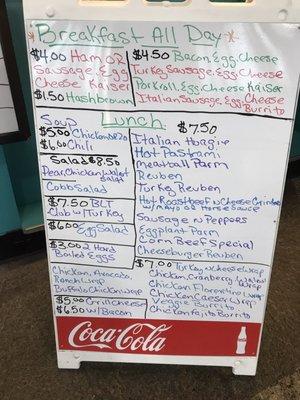 Breakfast All Day
$4.00 Ham OR
Sausage, Egg
Cheese Kaiser
$1.50 Hashbrown
$4.50 Bacon, Egg, Cheese
Turkey Sausage, Egg, Cheese
Pork roll, Egg, Cheese Kaiser
Italian Sausage, Egg, Cheese
Burrito
Lunch
Soup
$5.00 Chicken
$6.00 Chili
Salad $8.50
Pear, Chicken, Walnut
Salad
Cobb Salad
$7.50 BLT
Club w/ Turkey
$6.00
Egg Salad
$3.00 2 Hard
Boiled Eggs
Chicken, Avocado,
Ranch Wrap
Buffalo Chicken Wrap
$5.00 Grill Cheese
$6.50 w/ Bacon
$7.50
Italian Hoagie
Hot Pastrami
Meatball Parm
Reuben
Turkey Reuben
Hot Roast Beef n Cheese Grinder
w/ Mayo or Horse Sauce
Sausage n Peppers
Eggplant Parm
Corn Beef Special
Cheeseburger Reuben
$7.00 Turkey n Cheese Wrap
Chicken, Cranberry, Walnut Wrap
Chicken Florentine Wrap
Chicken Caesar Wrap
Veggie Burrito
Chicken Fajita Burrito
Coca-Cola